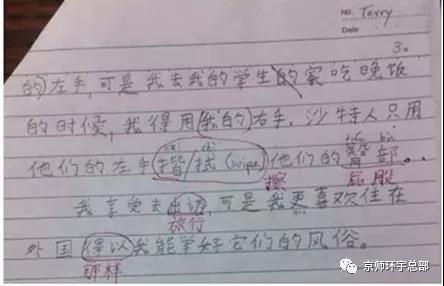 NO. Terry
Date
3.
的左手,可是我去我的学生的家吃晚饭
的时候,我得用我的右手。沙特人只用
他们的左手揩/拭(wipe)他们的臀部。
擦 屁股
我享受去出访,可是我更喜欢住在
旅行
外国得以我能学好它们的风俗。
那样
京师环宇总部